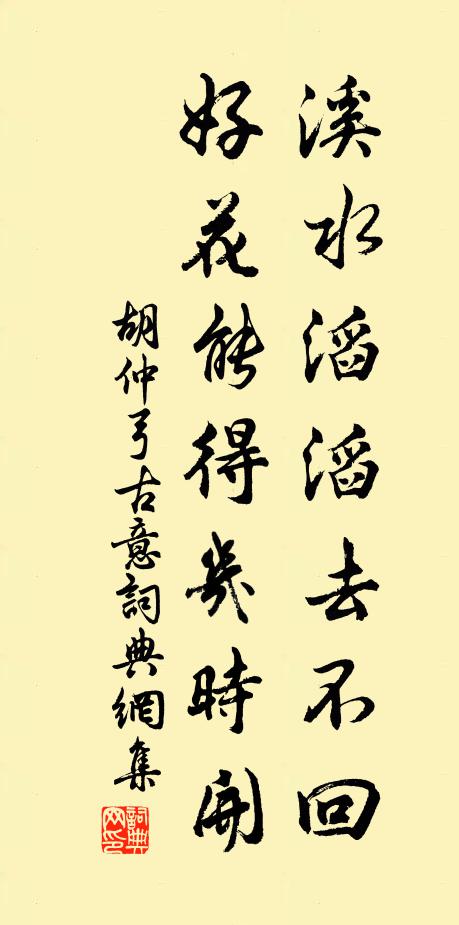 溪水滔滔去不回
好花能得幾時開
胡仲弓古意詞典網集
詞典網印